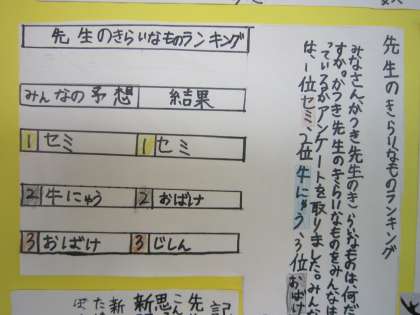 先生のきらいなものランキング
みんなの予想 結果
1 セミ 1 セミ
2 牛にゅう 2 おばけ
3 おばけ 3 じしん
先生のきらいなものランキング
みなさんがつき先生のきらいなものは、何だ
すか。かつき先生のきらいなものをみんなは
っているかアンケートを取りました。みんな
は、1位セミ、2位牛にゅう、3位おばけ